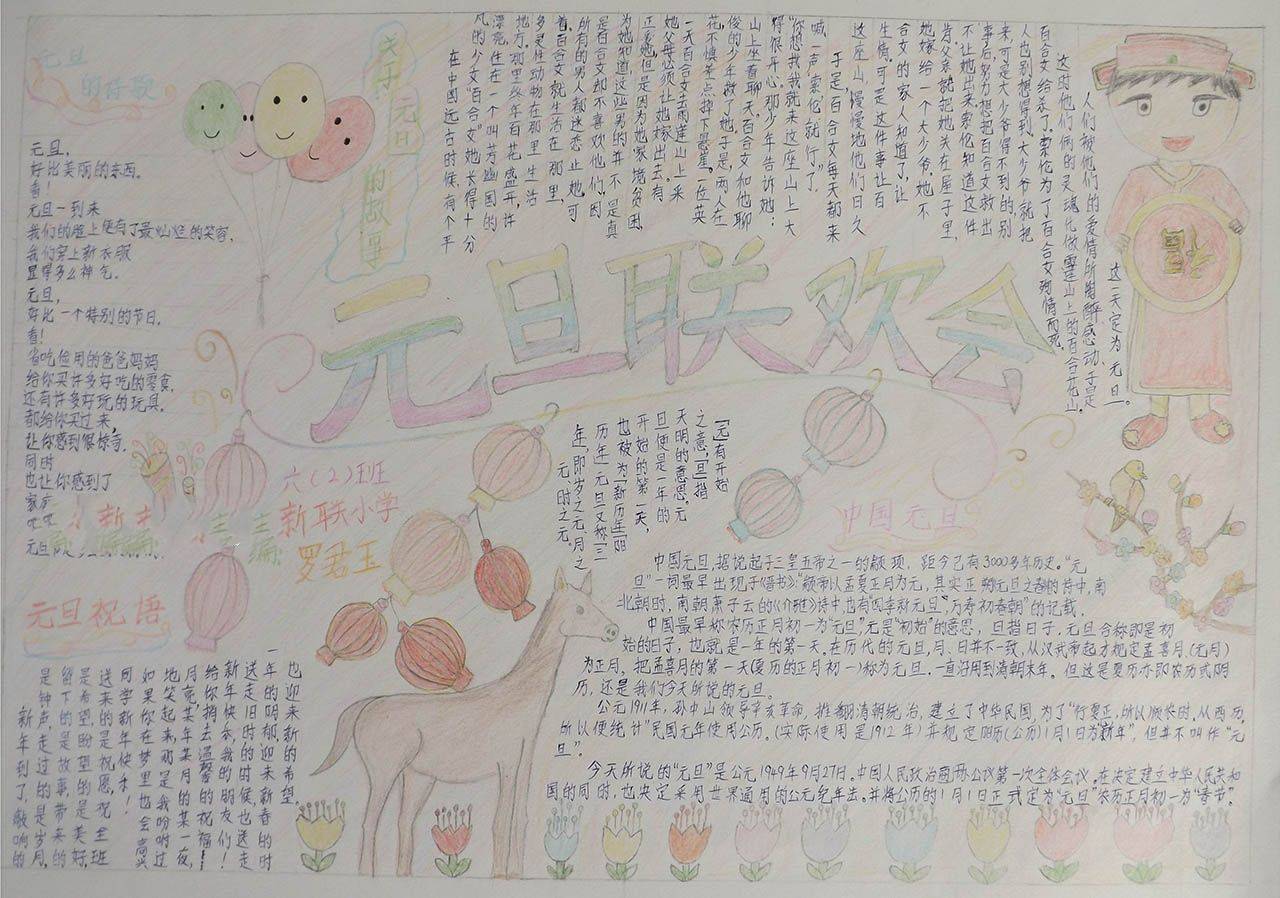 元旦
的赞歌
元旦,
好比美丽的东西。
看!
元旦一到来
我们的脸上便有了最灿烂的笑容,
我们穿上新衣服
显得多么神气。
元旦,
好比一个特别的节日,
看!
省吃俭用的爸爸妈妈
给你买许多好吃的零食,
还有许多好玩的玩具,
都给你买过来,
让你感到很惊奇,
同时
也让你感到了
家庭
关于元旦的故事
在中国远古时候,有个平
凡的少女“百合文”她长得十分
漂亮,住在一个叫芳幽国的
地方。那里终年百花盛开,许
多灵性动物在那里生活
着。百合文就生活在那里,
所有的男人都迷恋止她,可
是百合文却不喜欢他们,因
为她知道,这些男的并不是真
正爱她,但是因为她家境贫困,
她父母必须让她嫁出去,有
一天百合文去雨崖山上采
花,不慎差点掉下悬崖。一位英
俊的少年救了她,于是,两人在
山上座着聊天,百合文和他聊
得很开心,那少年告诉她:
“你想我,我就来这座山上大
喊一声‘索伦’就行了。”
于是,百合文每天都来
这座山,慢慢地他们日久
生情。可是这件事让百
合文的家人知道了,让
她嫁给一个大少爷,她不
肯父亲就把她关在屋子里,
不让她出来,索伦知道这件
事后,努力想把百合文救出
来,可是大少爷得不到的,别
人也别想得到,大少爷就把
百合文给杀了。索伦为了百合文殉情而死,
这时他们俩的灵魂化做霆山上的百合花山。
人们被他们的爱情所陶醉感动,于是
这一天定为元旦。
福
元旦联欢会
六(2)班
新联小学
罗君玉
主编
[元]有开始
之意,[旦]指
天明的意思。元
旦便是一年的
开始的第一天,
也被为[新历年][阳
历年]元旦又称[三
元]即岁之元、月之
元、时之元。
中国元旦
中国元旦,据说起于三皇五帝之一的颛顼,距今已有3000多年历史。“元
旦”一词最早出现于《晋书》:“颛帝以孟夏正月为元,其实正朔元旦之春”的诗中,南
北朝时,南朝萧子云的《介雅》诗中也有“四季新元旦,万寿初春朝”的记载.
中国最早称农历正月初一为“元旦”,元是“初始”的意思,旦指日子,元旦合称即是初
始的日子,也就是一年的第一天,在历代的元旦,月、日并不一致,从汉武帝起才规定孟喜月,(元月)
为正月,把孟喜月的第一天(夏历的正月初一)称为元旦.一直沿用到清朝末年.但这是夏历亦即农历或阴
历,还是我们今天所说的元旦。
公元1911年,孙中山领导辛亥革命,推翻清朝统治,建立了中华民国,为了“行夏正,所以顺农时,从西历,
所以便统计”民国元年使用公历.(实际使用是1912年)并规定阳历(公历)1月1日为“新年”,但并不叫作“元
旦”.
今天所说的“元旦”是公元1949年9月27日。中国人民政治商协会议第一次全体会议。在决定建立中华人民共和
国的同时,也决定采用世界通用的公元纪年法。并将公历的1月1日正式定为“元旦”农历正月初一为“春节”.
元旦祝语
也迎来新的希望
一年的明都迎来新春的时
送走旧时的时候,也送走
新年快乐,我的朋友们!
给你捎去温馨的祝福!
月亮,某年某月的某一夜,
地笑起来,那是我吩咐过
如果你在梦里也会高兴
同学新年快乐!
送来的盼望是祝全班
是希望是故愿,
留下的是的事带来美好,
是钟声走过的是岁月,
新年到了,敲响的